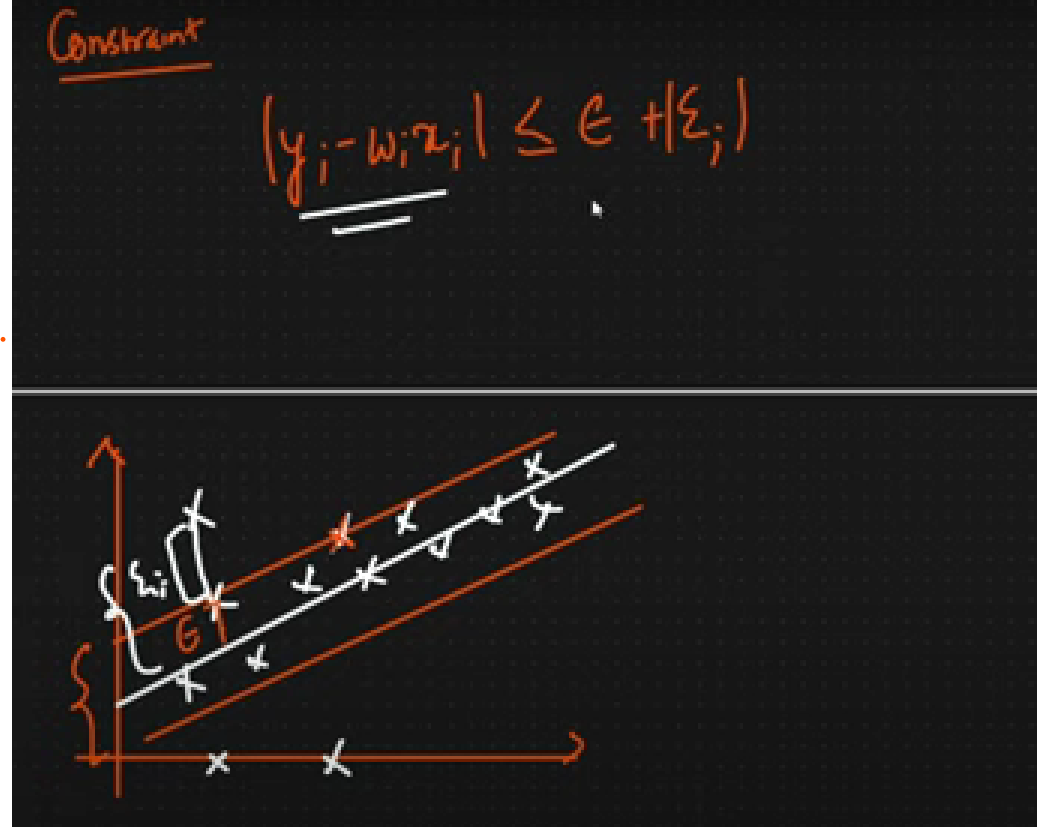 Constraint
|yᵢ-wᵢxᵢ| ≤ ϵ +|ξᵢ|
ξᵢ
ϵ